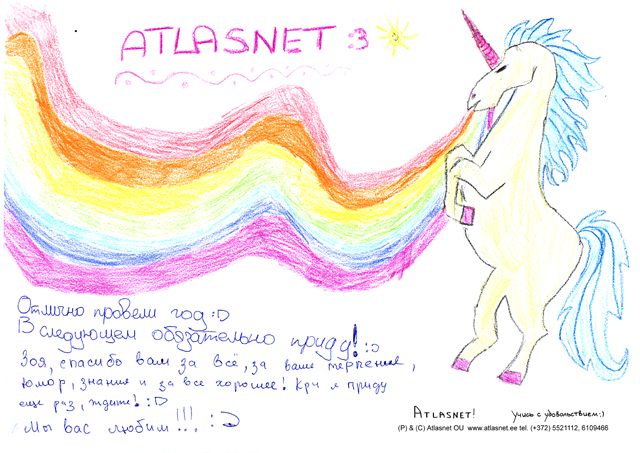 ATLASNET :3
Отлично провели год :D
В следующем обязательно приду! :D
Зоя, спасибо вам за всё, за ваше терпение,
юмор, знания и за все хорошее! Крч я приду
еще раз, ждите! :D
Мы вас любим!!! :D
ATLASNET! Учись с удовольствием:)
(P) & (C) Atlasnet OU www.atlasnet.ee tel. (+372) 5521112, 6109466